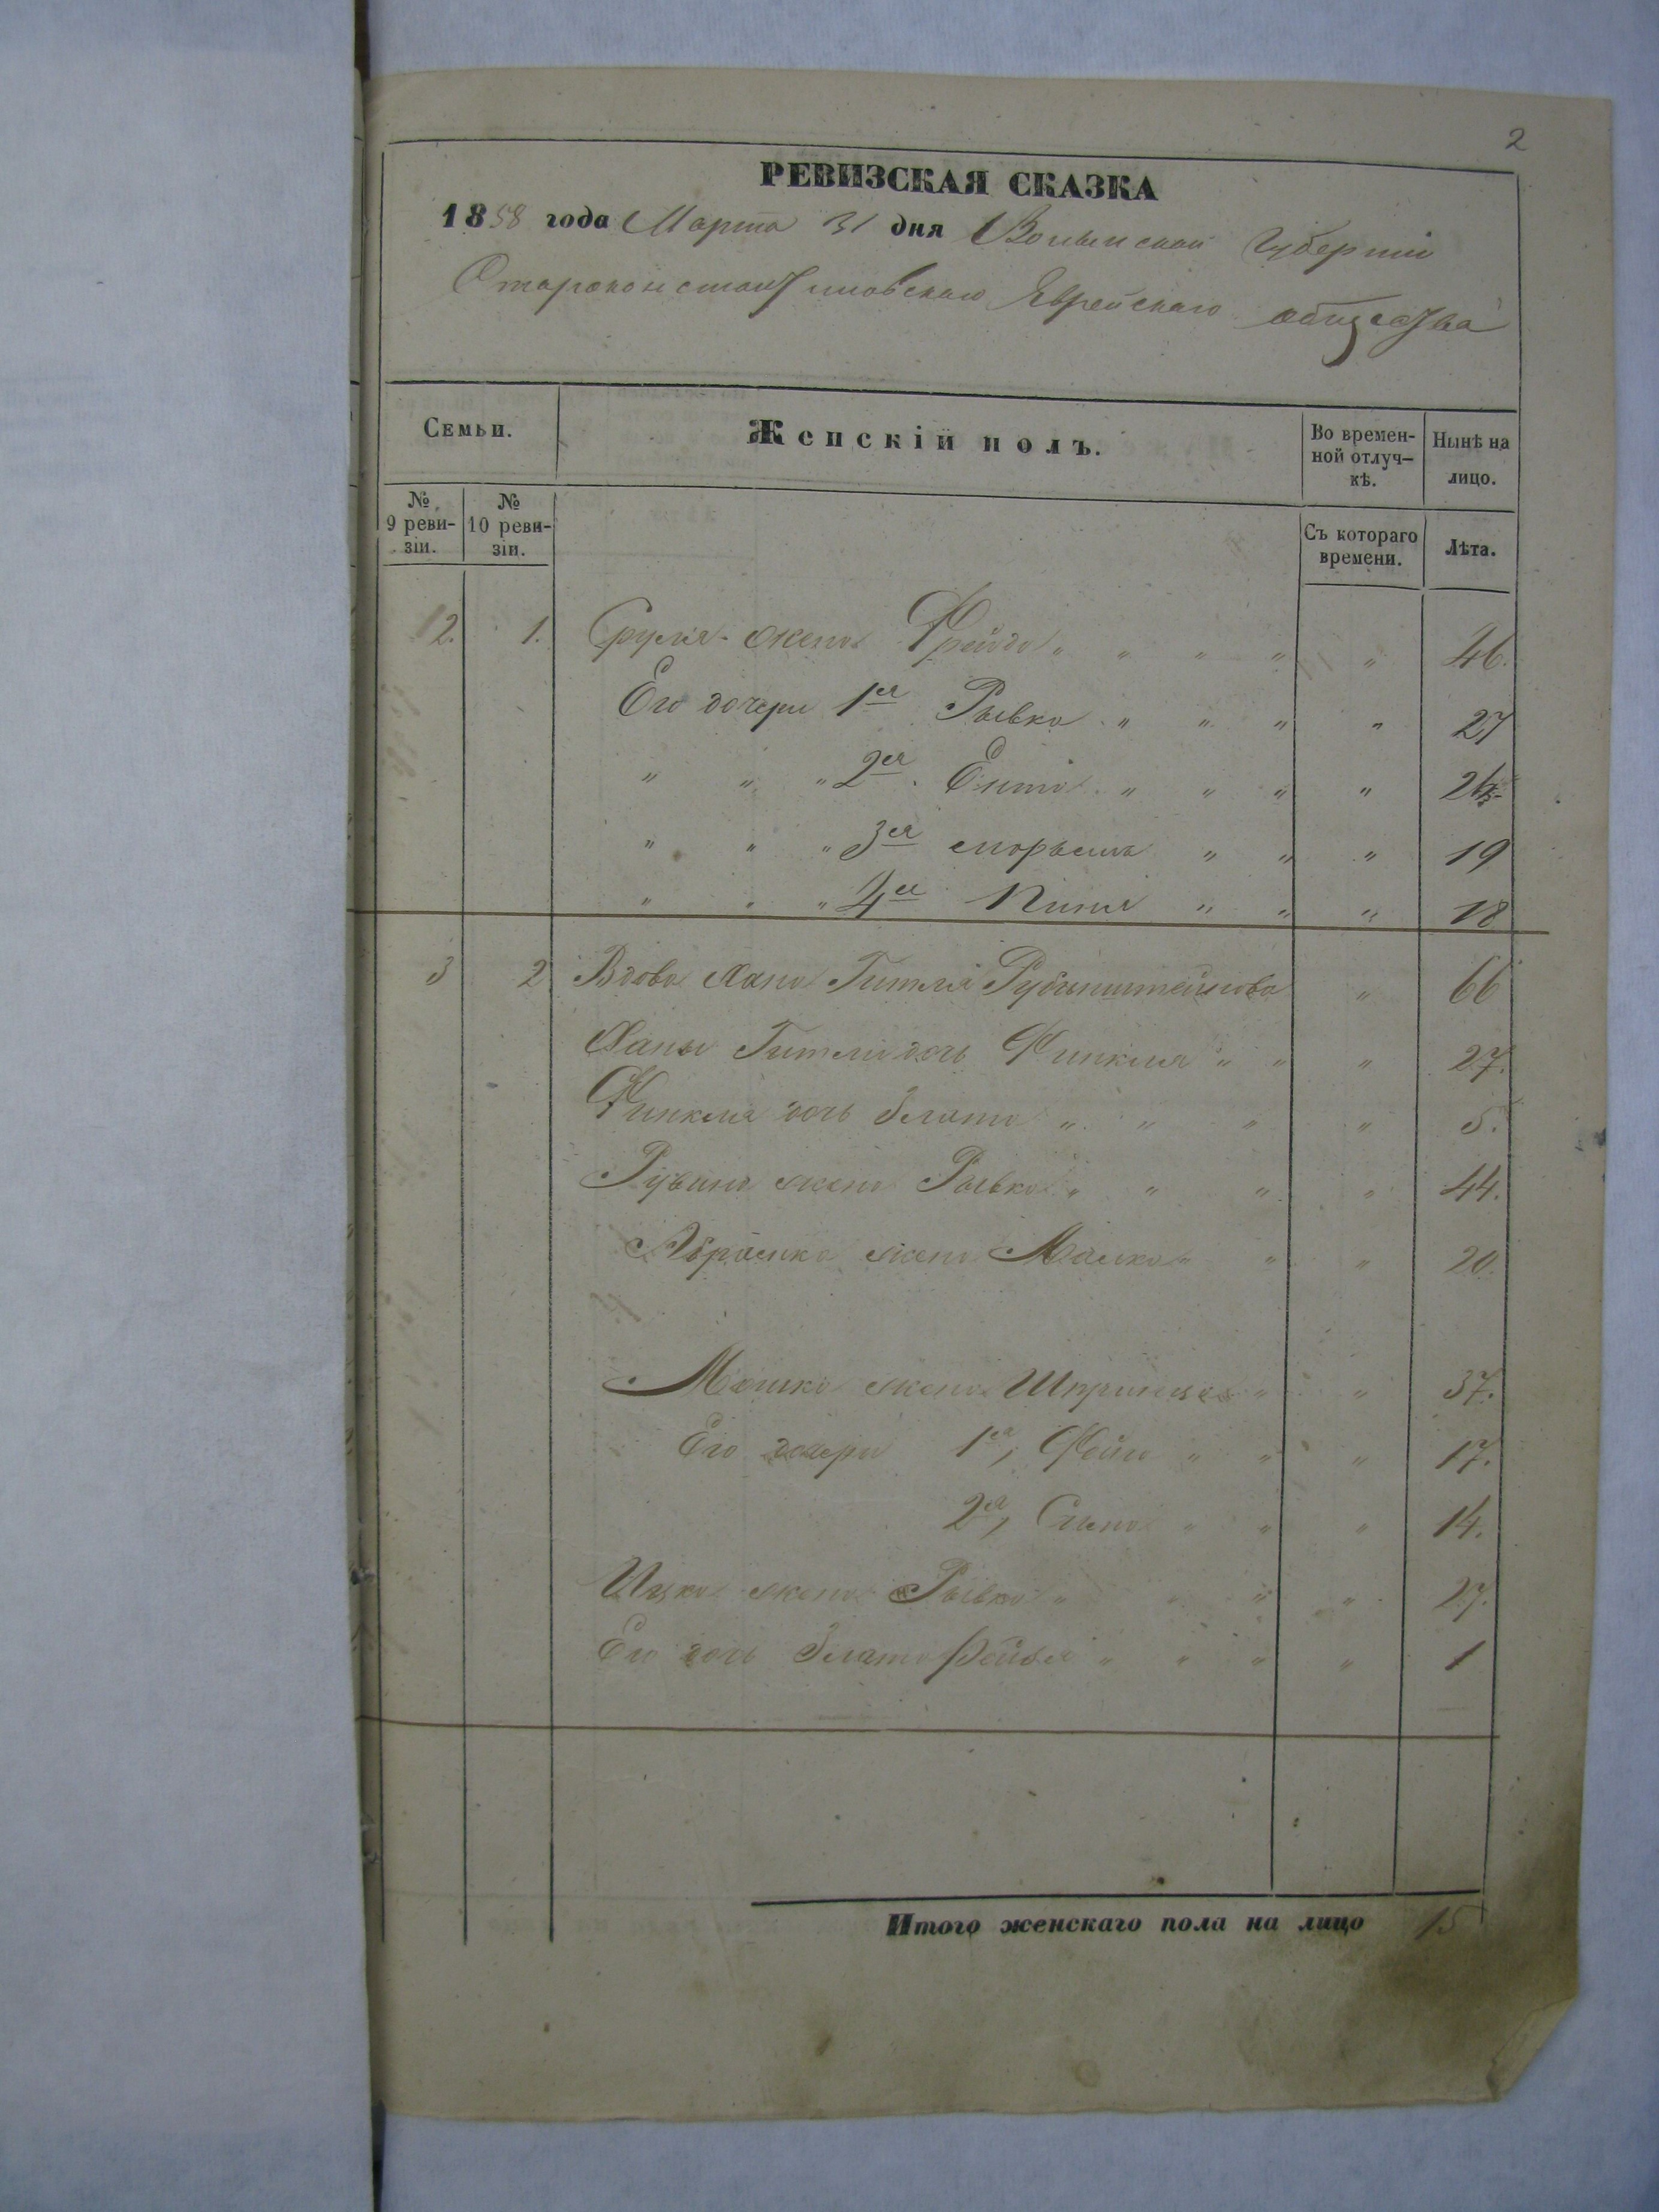 2
РЕВИЗСКАЯ СКАЗКА
1858 года Марта 31 дня Волынской Губерніи
Староконстантиновскаго Еврейскаго общества
Семьи.
Женскій полъ.
Во времен-
ной отлуч-
кѣ.
Нынѣ на
лицо.
№
9 реви-
зіи.
№
10 реви-
зіи.
Съ котораго
времени.
Лѣта.
12. 1. Сруля жена Фрейда " " " " " 46.
Его дочери 1ая Рывка " " " " 27
" " " 2ая Ента " " " "
" " " 3ая " " " 19
" " " 4ая " " " 18
3 2 Вдова Хана Гитля Рубинштейнова " 66
Ханы Гитли дочь Финкля " " " 27.
Финкля дочь Злата " " " " 5.
Рувина жена Рывка " " " " 44.
Абрамка жена Малка " " " 20.
Мошка жена Шпринца " " 37.
Его дочери 1ая, Фейга " " " 17.
2ая, " " " 14.
Ицка жена Рывка " " " " 27.
Его дочь Злата Фейга " " " " 1
Итого женскаго пола на лицо 15